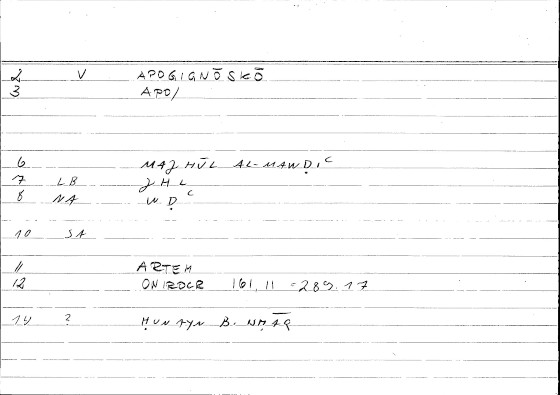 2 V APOGIGNŌSKŌ
3 APO/
6 MAJHŪL AL-MAWḌIʿ
7 LB JHL
8 NA WḌʿ
10 SA
11 ARTEM
12 ONIROCR 161,11 = 289,17
14 ? ḤUNAYN B.